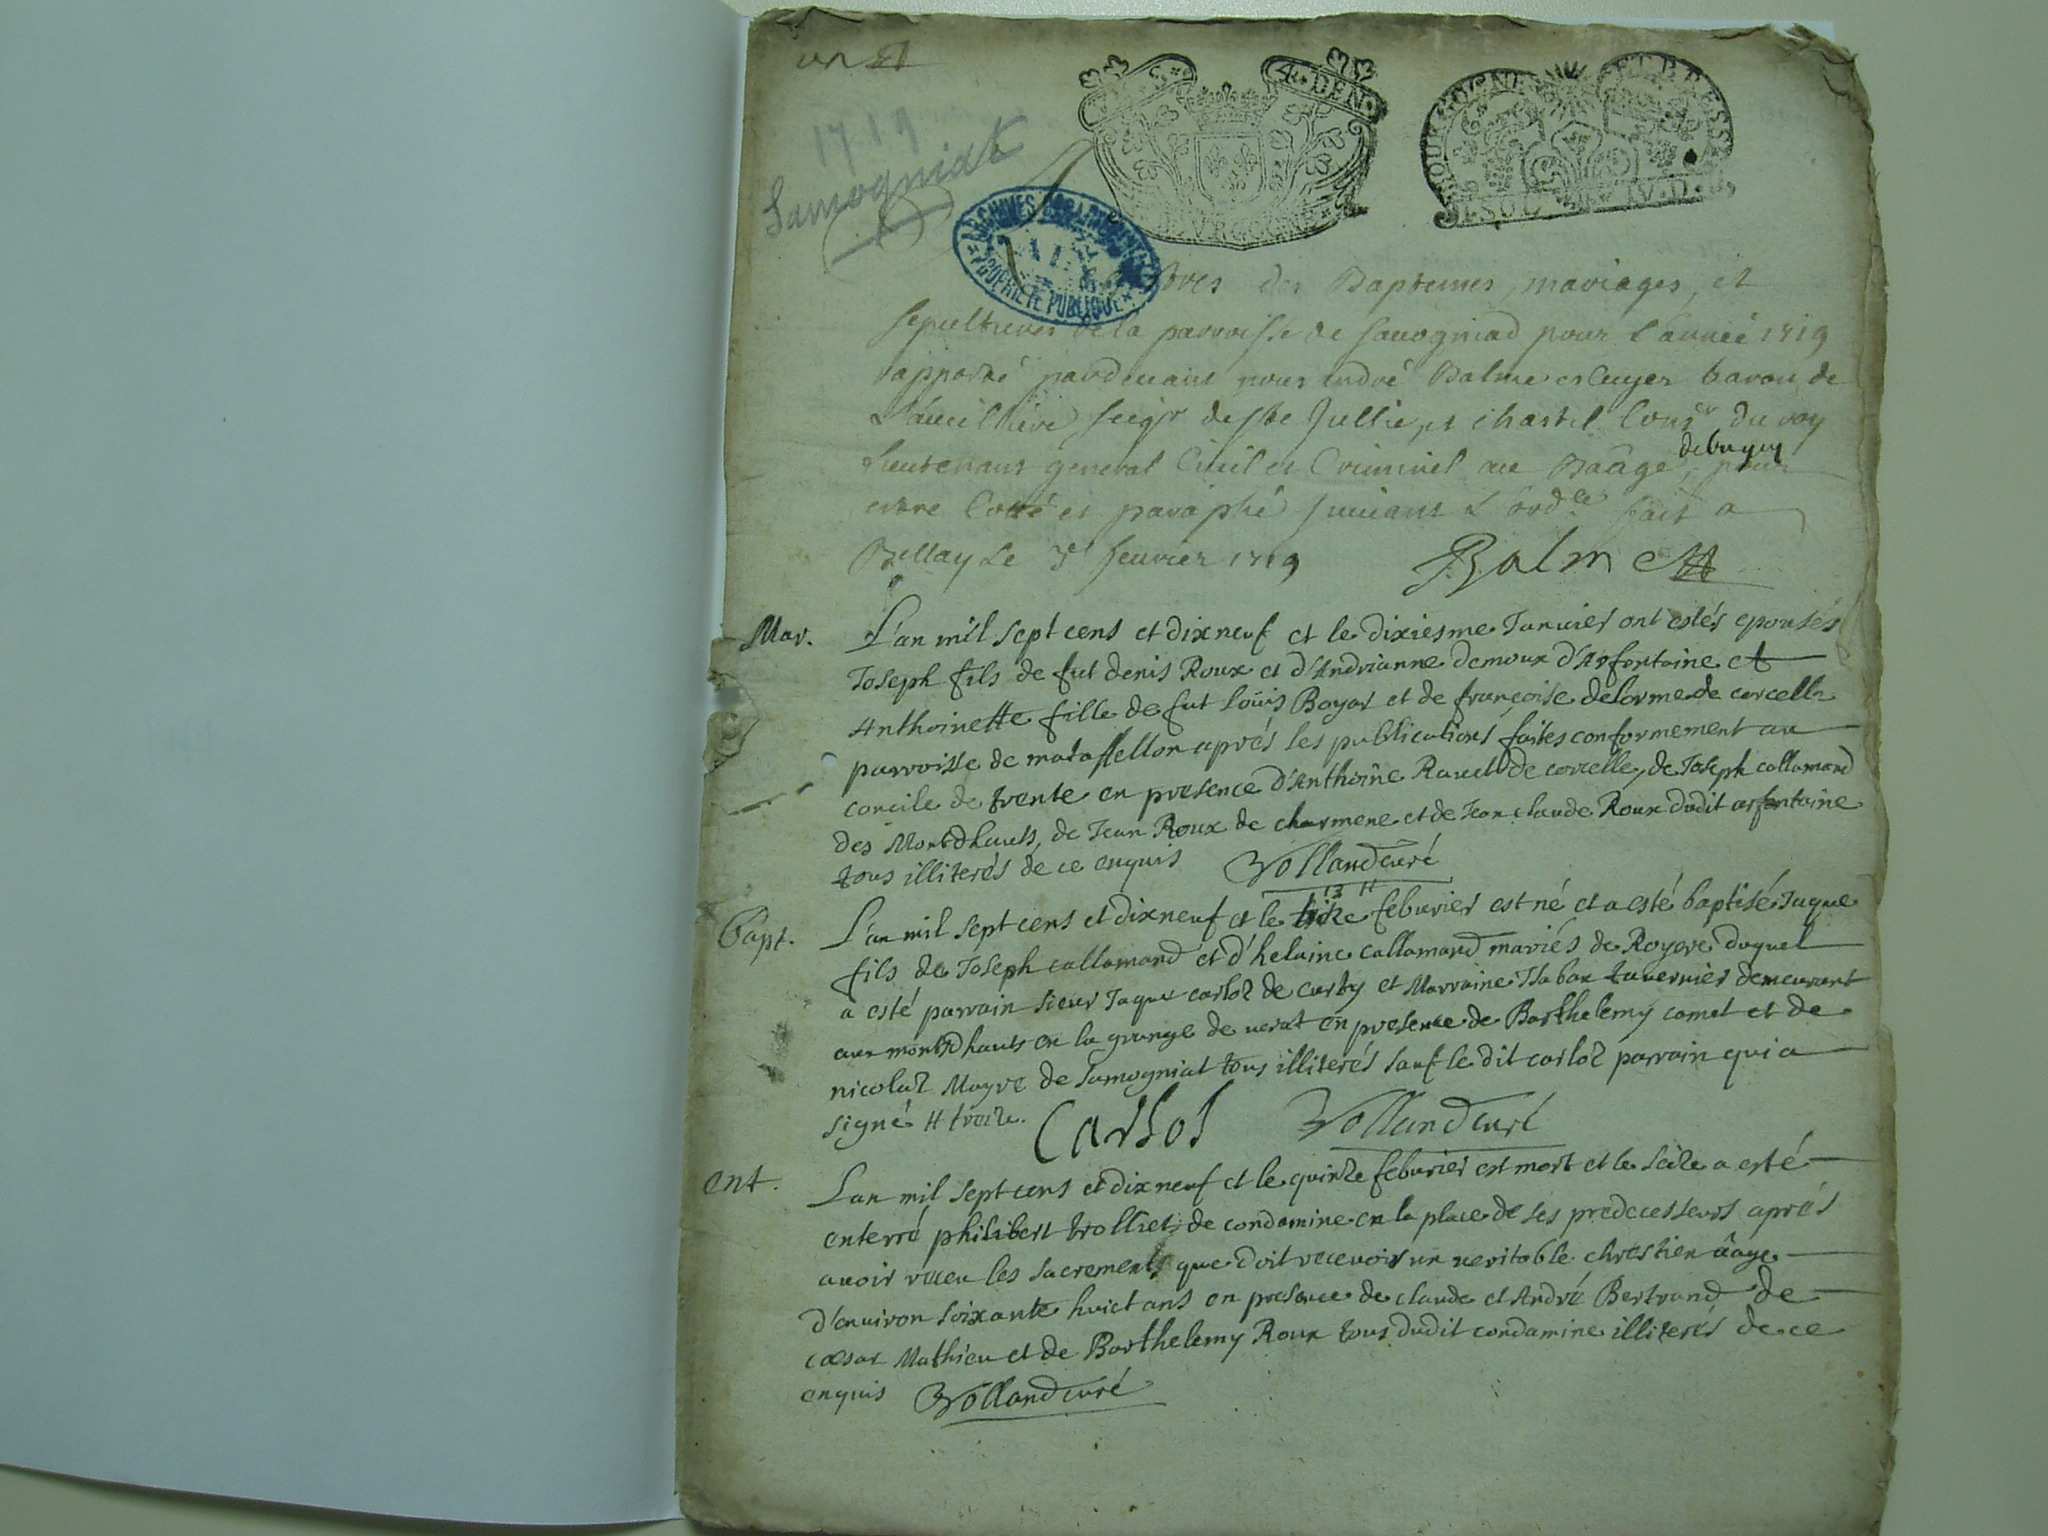 un
4. DEN.
BOURGOGNE ET BRESSE
1719
Samogniat
ARCHIVES DÉPARTEMENTALES
PROPRIÉTÉ PUBLIQUE
des Baptemes, mariages, et
sepultures de la parroisse de samogniad pour l'année 1719
apporté pardevant nous André Balme escuyer baron de
seigr de Ste Jullie, et chastel Consr du roy
lieutenant general Civil et Criminel au Baage debugey, pour
estre Cotté et paraphé suivant L'ordce fait a
Bellay Le 3e feuvrier 1719 Balme
Mar. L'an mil sept cens et dixneuf et le dixiesme Januier ont estés epousés
Joseph fils de fut denis Roux et d'Andrianne demoux d'Arfontaine et
Anthoinette fille de fut Loüis Boyar et de françoise delorme de corcelle
parroisse de mataffellon aprés les publications faites conformement au
concile de trente en presence d'Anthoine Ravet de corcelle, de Joseph callamard
des Montdhauts, de Jean Roux de charmene et de Jean claude Roux dudit arfontaine
tous illiterés de ce enquis Vollandcuré
13 H
Bapt. L'an mil sept cens et dixneuf et le feburier est né et a esté baptisé Jaque
fils de Joseph callamard et d'helaine callamard mariés de Royere duquel
a esté parrain sieur Jaque carloz de et Marraine Isabau tavernier demeurant
aux montdhauts en la grange de verat en presence de Barthelemy comet et de
nicolaz Mayre de Samogniat tous illiterés sauf le dit carloz parrain qui a
signé H treize. Carlos Vollandcuré
ent. L'an mil sept cens et dixneuf et le quinze feburier est mort et le seize a esté
enterré philibert trolliet de condamine en la place de ses predecesseurs aprés
avoir receu les sacrements que doit recevoir un veritable chrestien âage
d'environ soixante huict ans en presence de claude et André Bertrand de
cæsar Mathieu et de Barthelemy Roux tous dudit condamine illiterés de ce
enquis Vollandcuré